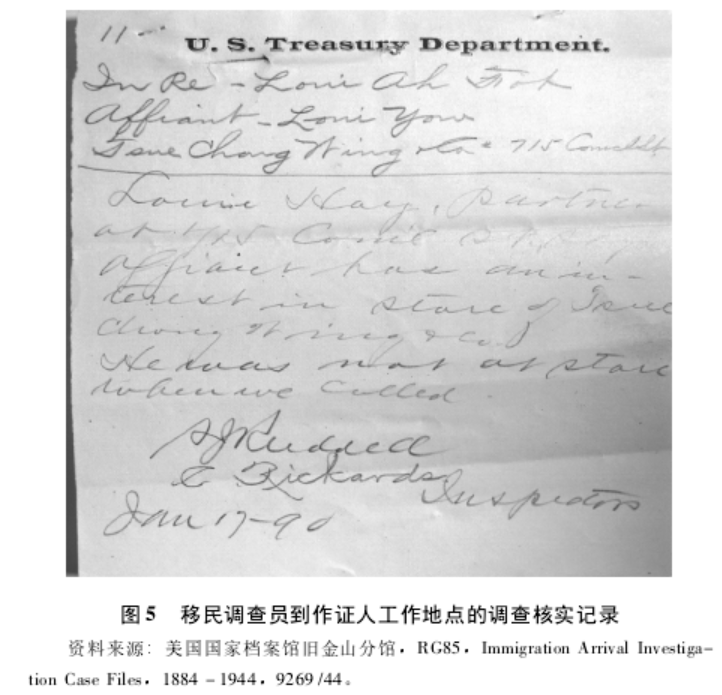 11-
U. S. Treasury Department.
In Re - Louie Ah
Affiant - Louie You
Tsue Chong Wing & Co 715
Louie Hay, partner
at 715 St
affiant has an in-
terest in store of Tsue
Chong Wing & Co
He was not at store
when we called.
C Rickards
Inspectors
Jan 17-90
图5 移民调查员到作证人工作地点的调查核实记录
资料来源：美国国家档案馆旧金山分馆，RG85，Immigration Arrival Investiga-
tion Case Files，1884 - 1944，9269 /44。